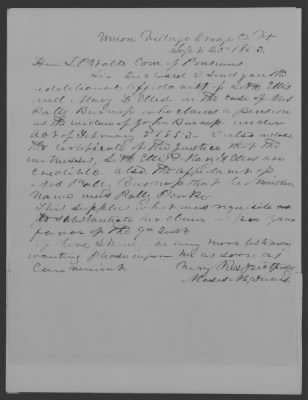 Union Village Orange Co. Vt
Sept 20th 1853.
Hon L P Waldo Com of Pensions
Sir Enclosed I send you the
additional affidavits of S. H. Ellis
and Mary D. Ellis in the case of Mrs
Polly Burnap who claims a pension
as the widow of John Burnap under
act of February 3d 1853. I also enclose
the certificate of the Justice that the
witnesses, S. H. Ellis & Mary Ellis are
credible. also the affidavit of
Mrs Polly Burnap that her maiden
name was Polly Parker
This supplies what was requisite as
to substantiate her claim in your
favor of the 9th Inst.
If there should be any more testimony
wanting please inform me as soon as
convenient Very Respectfully
Moses